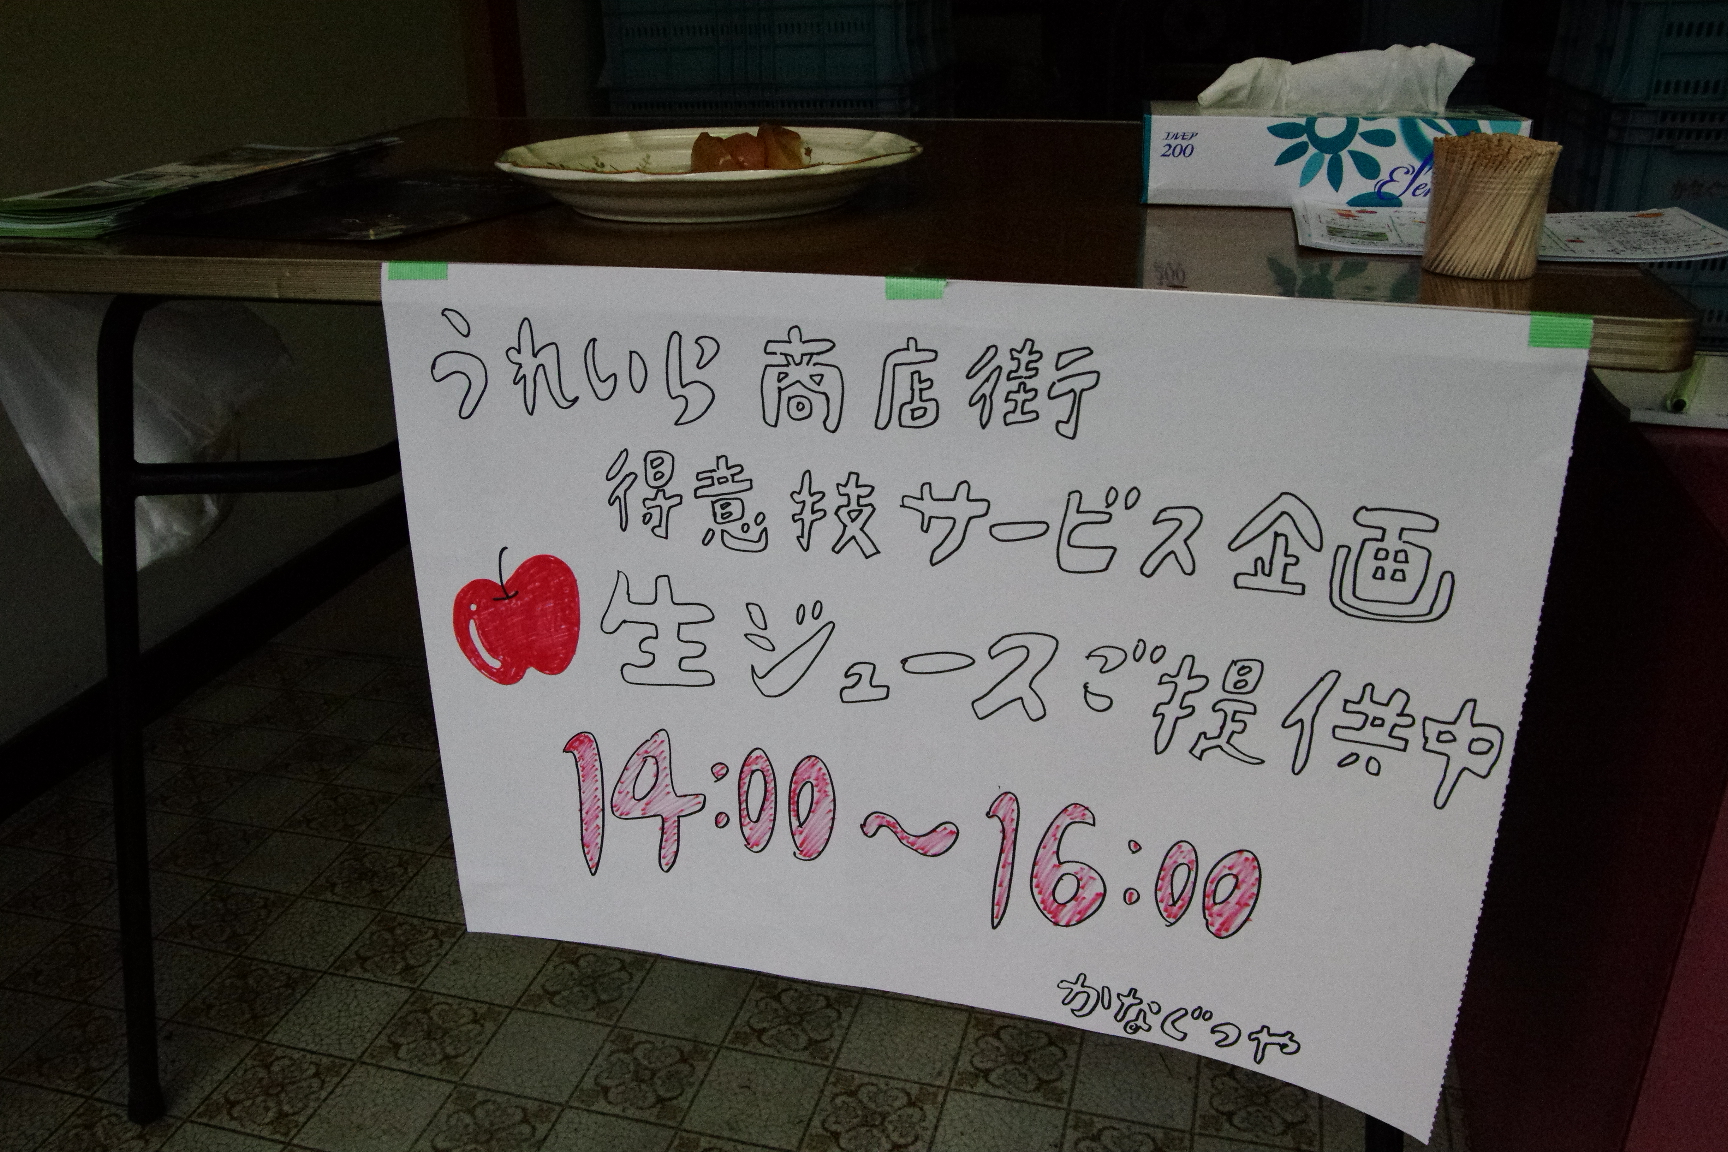 エルモア
200
Ele
うれいら商店街
得意技サービス企画
生ジュースご提供中
14:00~16:00
かなぐつや